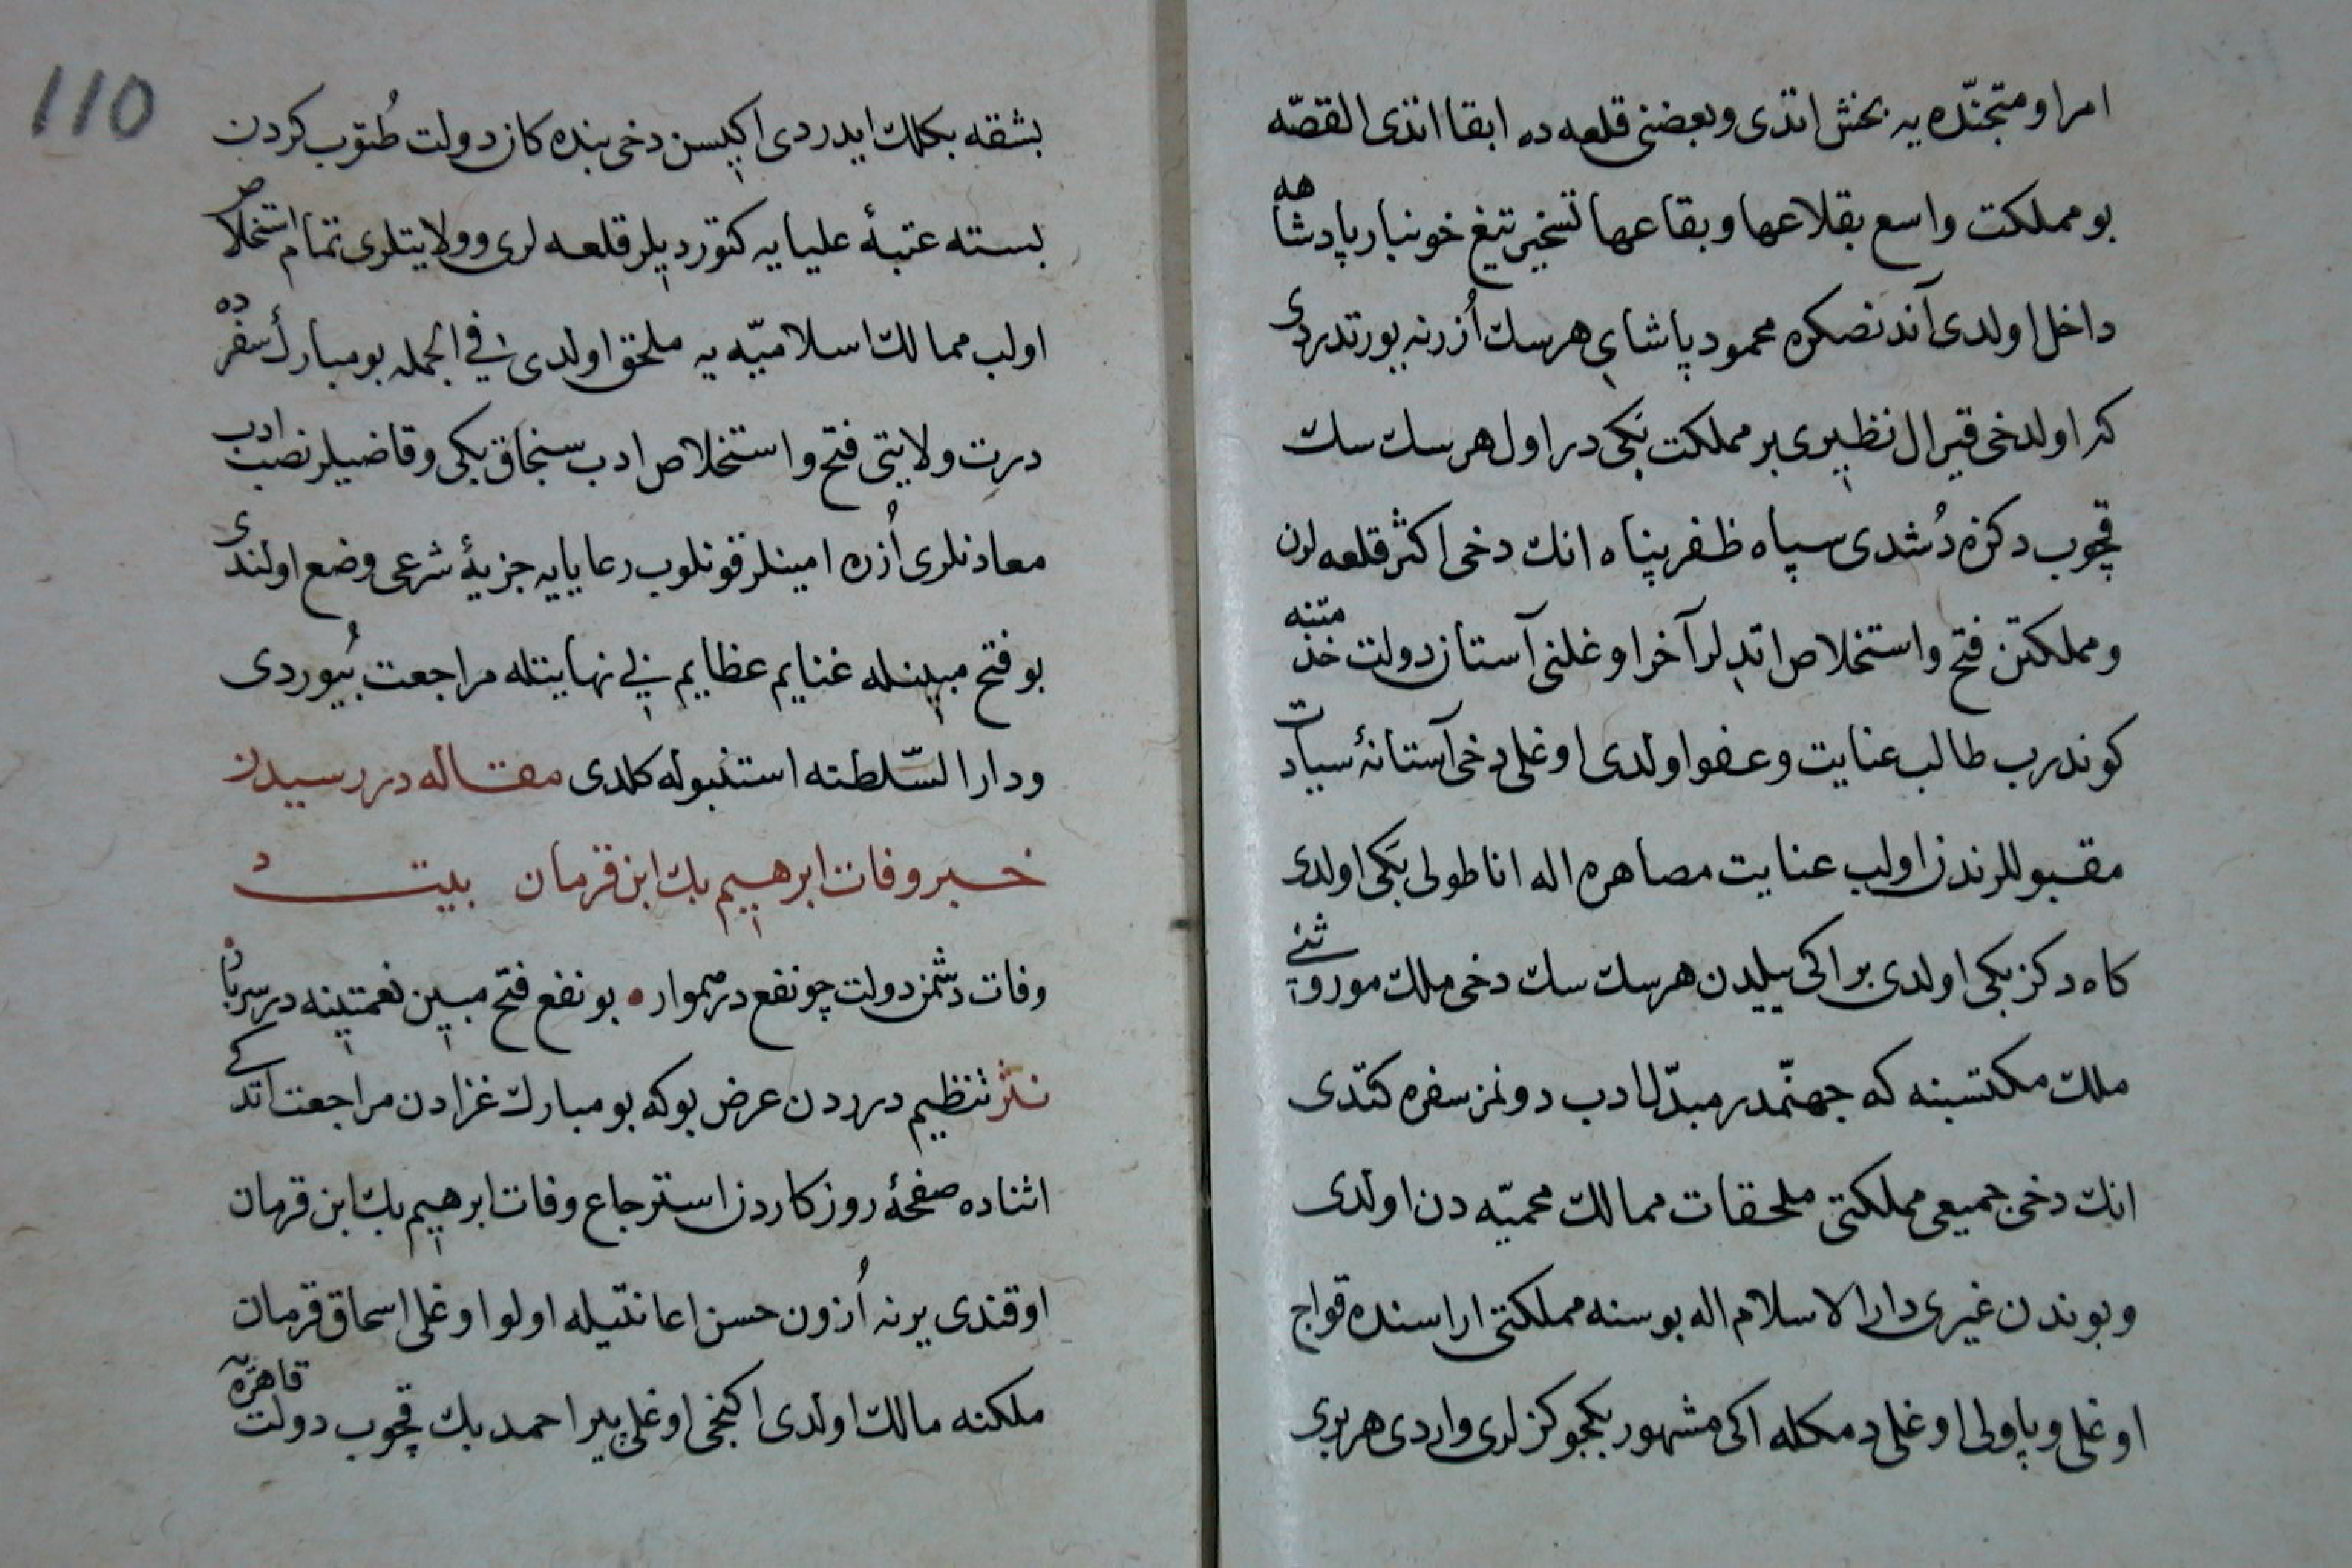 امرا و متجنّده یه بخش اتذی و بعضنی قلعه ده ابقا اتذی القصّه
بو مملکت واسع بقلاعها و بقاعها تسخیر تیغ خونبار پادشاهه
داخل اولدی آندنصکره محمود پاشای هرسك اُزرنه بورتدردی
که اولدخی قیرال نظیری بر مملکت بکی در اول هرسك سك
قچوب دکزه دُشدی سپاه ظفر پناه انك دخی اکثر قلعه لرن
و مملکتن فتح و استخلاص اتدیلر آخر اوغلنی آستان دولت خذمتنه
کوندرب طالب عنایت و عفو اولدی اوغلی دخی آستانۀ سیادت
مقبوللرندن اولب عنایت مصاهره اله اناطولی بکی اولدی
کاه دکز بکی اولدی بر اکی ییلدن هرسك سك دخی ملك موروثنی
ملك مکتسبنه که جهنّمدر مبدّل ادب دونمز سفره کتدی
انك دخی جمیعی مملکتی ملحقات ممالك محمیّه دن اولدی
و بوندن غیری دار الاسلام اله بوسنه مملکتی اراسنده قواج
اوغلی و پاولی اوغلی دمکله اکی مشهور بکجوکزلری واردی هر بری
110
بشقه بکلك ایدردی اکیسن دخی بنده کان دولت طُنوب کردن
بسته عتبۀ علیایه کتوردیلر قلعه لری و ولایتلری تمام استخلاص
اولب ممالك اسلامیّه یه ملحق اولدی فی الجمله بو مبارك سفرده
درت ولایتی فتح و استخلاص ادب سنجاق بکی و قاضیلر نصب ادب
معادنلری اُزره امینلر قونلوب رعایایه جزیۀ شرعی وضع اولندی
بو فتح مبینله غنایم عظایم بی نهایتله مراجعت بُیوردی
و دار السّلطنه استنبوله کلدی مقاله در رسیدن
خبر وفات ابرهیم بك ابن قرمان بیت
وفات دشمن دولت چو نفع در هموار • بو نفع فتح مبین نعمتینه در سربار
نثر تنظیم درردن عرض بو که بو مبارك غزادن مراجعت اتدکی
اثناده صفحۀ روزکاردن استرجاع وفات ابرهیم بك ابن قرمان
اوقندی یرنه اُزون حسن اعانتیله اولو اوغلی اسحاق قرمان
ملکنه مالك اولدی اکنجی اوغلی پیر احمد بك قچوب دولت قاهره یه